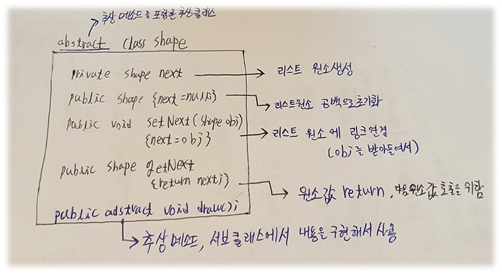 추상 메소드를 포함한 추상클래스
abstract class shape
private shape next → 리스트 원소생성
public shape {next=null;} → 리스트원소 공백으로초기화
public void setNext(shape obj)
{next=obj;} → 리스트 원소에 링크연결
(obj를 받아들여서)
public shape getNext
{return next;} → 원소값 return, 다음원소값 호출을 위함
public adstract void draw();
추상 메소드, 서브클래스에서 내용을 구현해서 사용